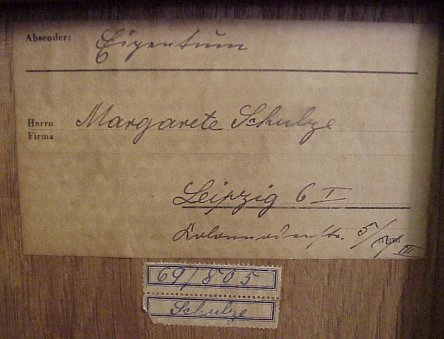 Absender: Eigentum
Herrn Margarete Schulze
Firma
Leipzig C 1
Kolonnadenstr. 5/7 III
69/805
Schulze